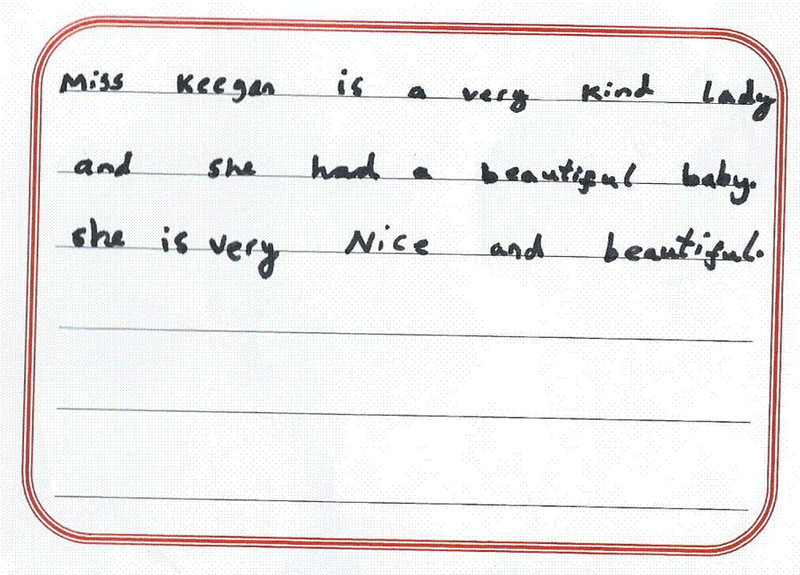 Miss Keegan is a very kind lady
and she had a beautiful baby.
she is very Nice and beautiful.